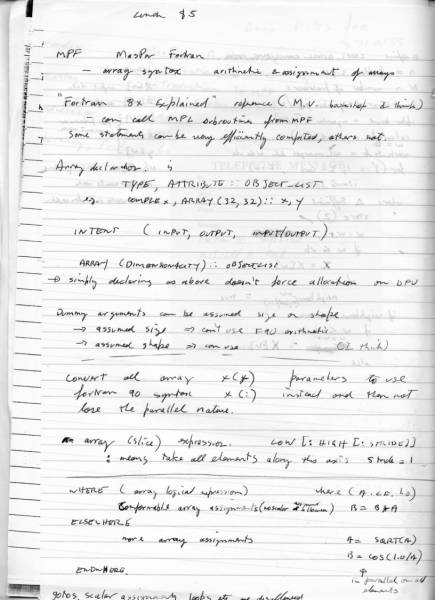 Lunch $5
MPF MasPar Fortran
- array syntax arithmetic & assignment of arrays
"Fortran 8x Explained" reference (M.V.
- can call MPL subroutines from MPF
Some statements can be very efficiently computed, others not.
Array declaration is
TYPE, ATTRIBUTE :: OBJECT_LIST
eg. COMPLEX, ARRAY(32,32) :: X, Y
INTENT (INPUT, OUTPUT, INPUT/OUTPUT)
ARRAY (DIMENSIONALITY) :: OBJECTLIST
→ simply declaring as above doesn't force allocation on DPU
Dummy arguments can be assumed size or shape
→ assumed size → can't use F90 arithmetic
→ assumed shape → can use (I think)
Convert all array x(*) parameters to use
fortran 90 syntax x(:) instead and then not
lose the parallel nature.
array (slice) expression. LOW [: HIGH [: STRIDE]]
: means take all elements along this axis Stride = 1
WHERE (array logical expression) where (A.GE.1.0)
Conformable array assignments (no scalar B = B*A
ELSEWHERE
more array assignments A = SQRT(A)
B = COS(1.0/A)
ENDWHERE.
in parallel on all
elements
gotos, scalar assignments, loops etc are disallowed